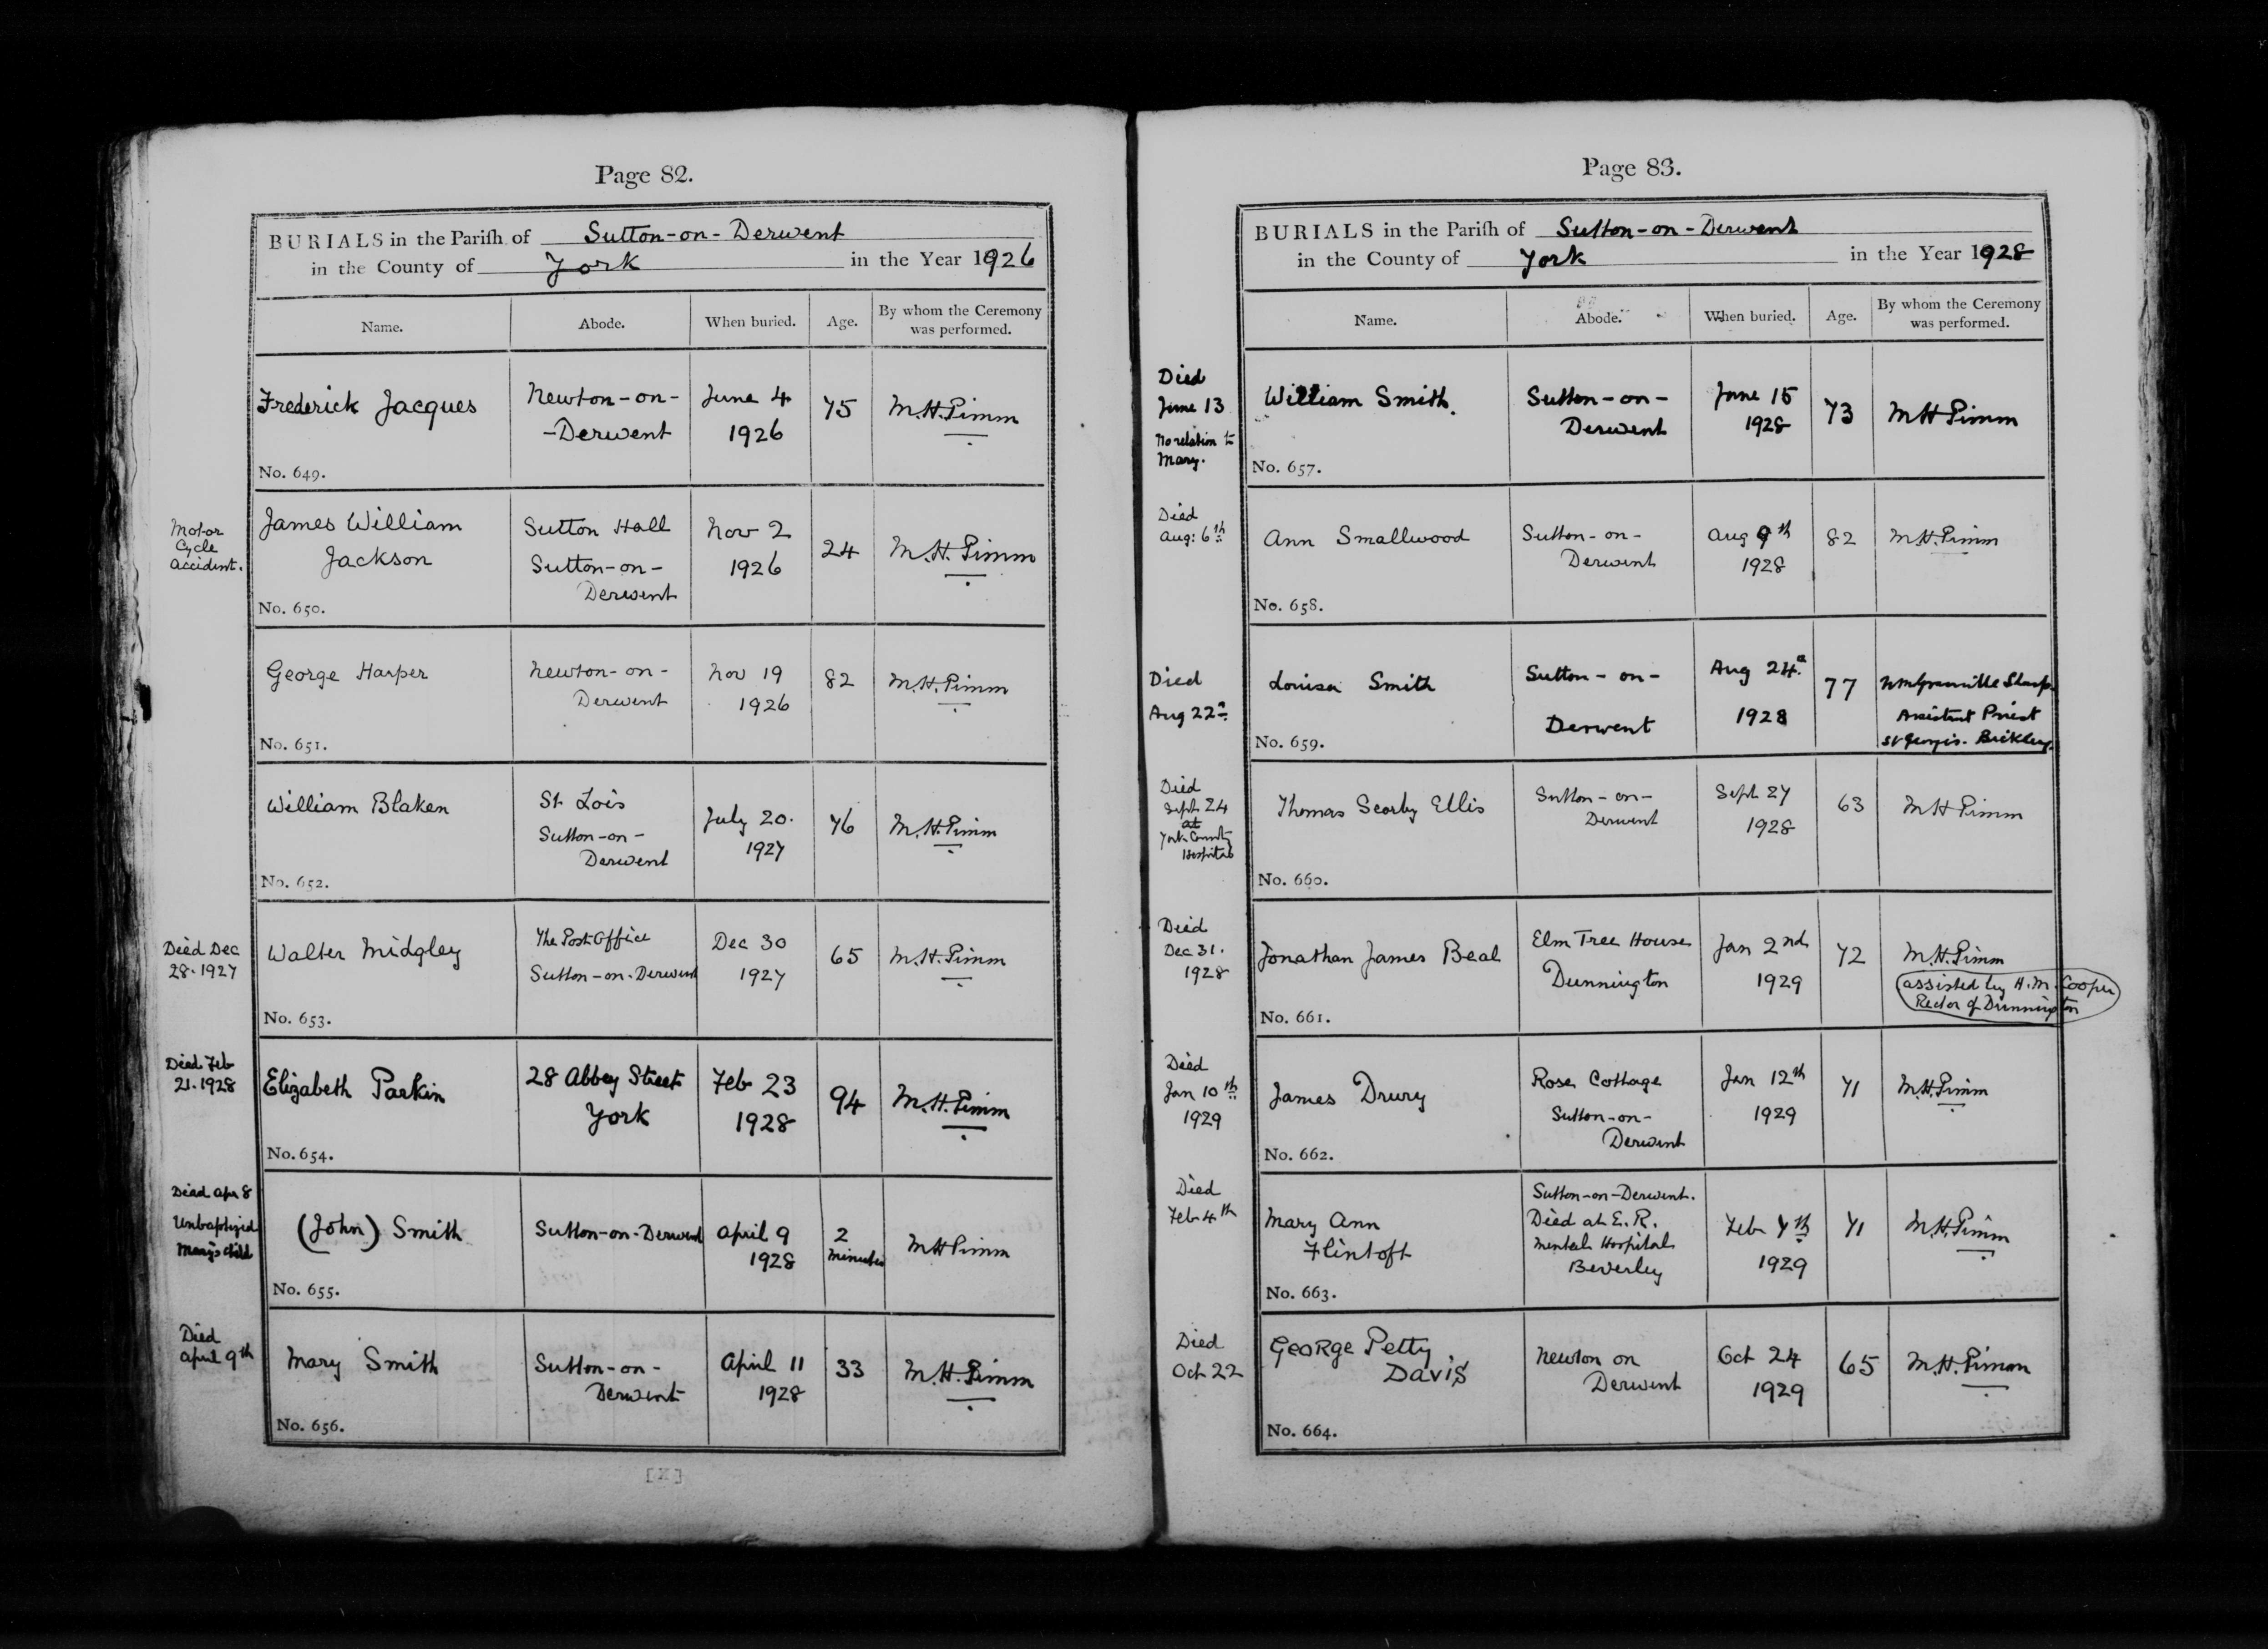 Page 82.
BURIALS in the Parish of Sutton-on-Derwent
in the County of York in the Year 1926
Name. Abode. When buried. Age. By whom the Ceremony was performed.
Frederick Jacques
Newton-on-
-Derwent
June 4
1926
75
M.H.Pimm
No. 649.
Motor
Cycle
accident.
James William
Jackson
Sutton Hall
Sutton-on-
Derwent
Nov 2
1926
24
M.H.Pimm
No. 650.
George Harper
Newton-on-
Derwent
Nov 19
1926
82
M.H.Pimm
No. 651.
William Blaken
St Lois
Sutton-on-
Derwent
July 20.
1927
76
M.H.Pimm
No. 652.
Died Dec
28.1927
Walter Midgley
The Post Office
Sutton-on-Derwent
Dec 30
1927
65
M.H.Pimm
No. 653.
Died Feb
21.1928
Elizabeth Parkin
28 Abbey Street
York
Feb 23
1928
94
M.H.Pimm
No. 654.
Died Apr 8
Unbaptized
Mary's child
(John) Smith
Sutton-on-Derwent
April 9
1928
2
minutes
M H Pimm
No. 655.
Died
April 9th
Mary Smith
Sutton-on-
Derwent
April 11
1928
33
M.H.Pimm
No. 656.
[X]
Page 83.
BURIALS in the Parish of Sutton-on-Derwent
in the County of York in the Year 1928
Name. Abode. When buried. Age. By whom the Ceremony was performed.
Died
June 13
No relation to
Mary.
William Smith.
Sutton-on-
Derwent
June 15
1928
73
M H Pimm
No. 657.
Died
Aug: 6th
Ann Smallwood
Sutton-on-
Derwent
Aug 9th
1928
82
M.H.Pimm
No. 658.
Died
Aug 22
Louisa Smith
Sutton-on-
Derwent
Aug 24.
1928
77
Wm Granville Sharp.
Assistant Priest
St George's. Bickley.
No. 659.
Died
Sept 24
at
York County
Hospital
Thomas Scorby Ellis
Sutton-on-
Derwent
Sept 27
1928
63
M H Pimm
No. 660.
Died
Dec 31.
1928
Jonathan James Beal
Elm Tree House
Dunnington
Jan 2nd
1929
72
M.H.Pimm
assisted by H.M.Cooper
Rector of Dunnington
No. 661.
Died
Jan 10th
1929
James Drury
Rose Cottage
Sutton-on-
Derwent
Jan 12th
1929
71
M.H.Pimm
No. 662.
Died
Feb 4th
Mary Ann
Flintoft
Sutton-on-Derwent.
Died at E.R.
Mental Hospital
Beverley
Feb 7th
1929
71
M.H.Pimm
No. 663.
Died
Oct 22
George Petty
Davis
Newton on
Derwent
Oct 24
1929
65
M.H.Pimm
No. 664.